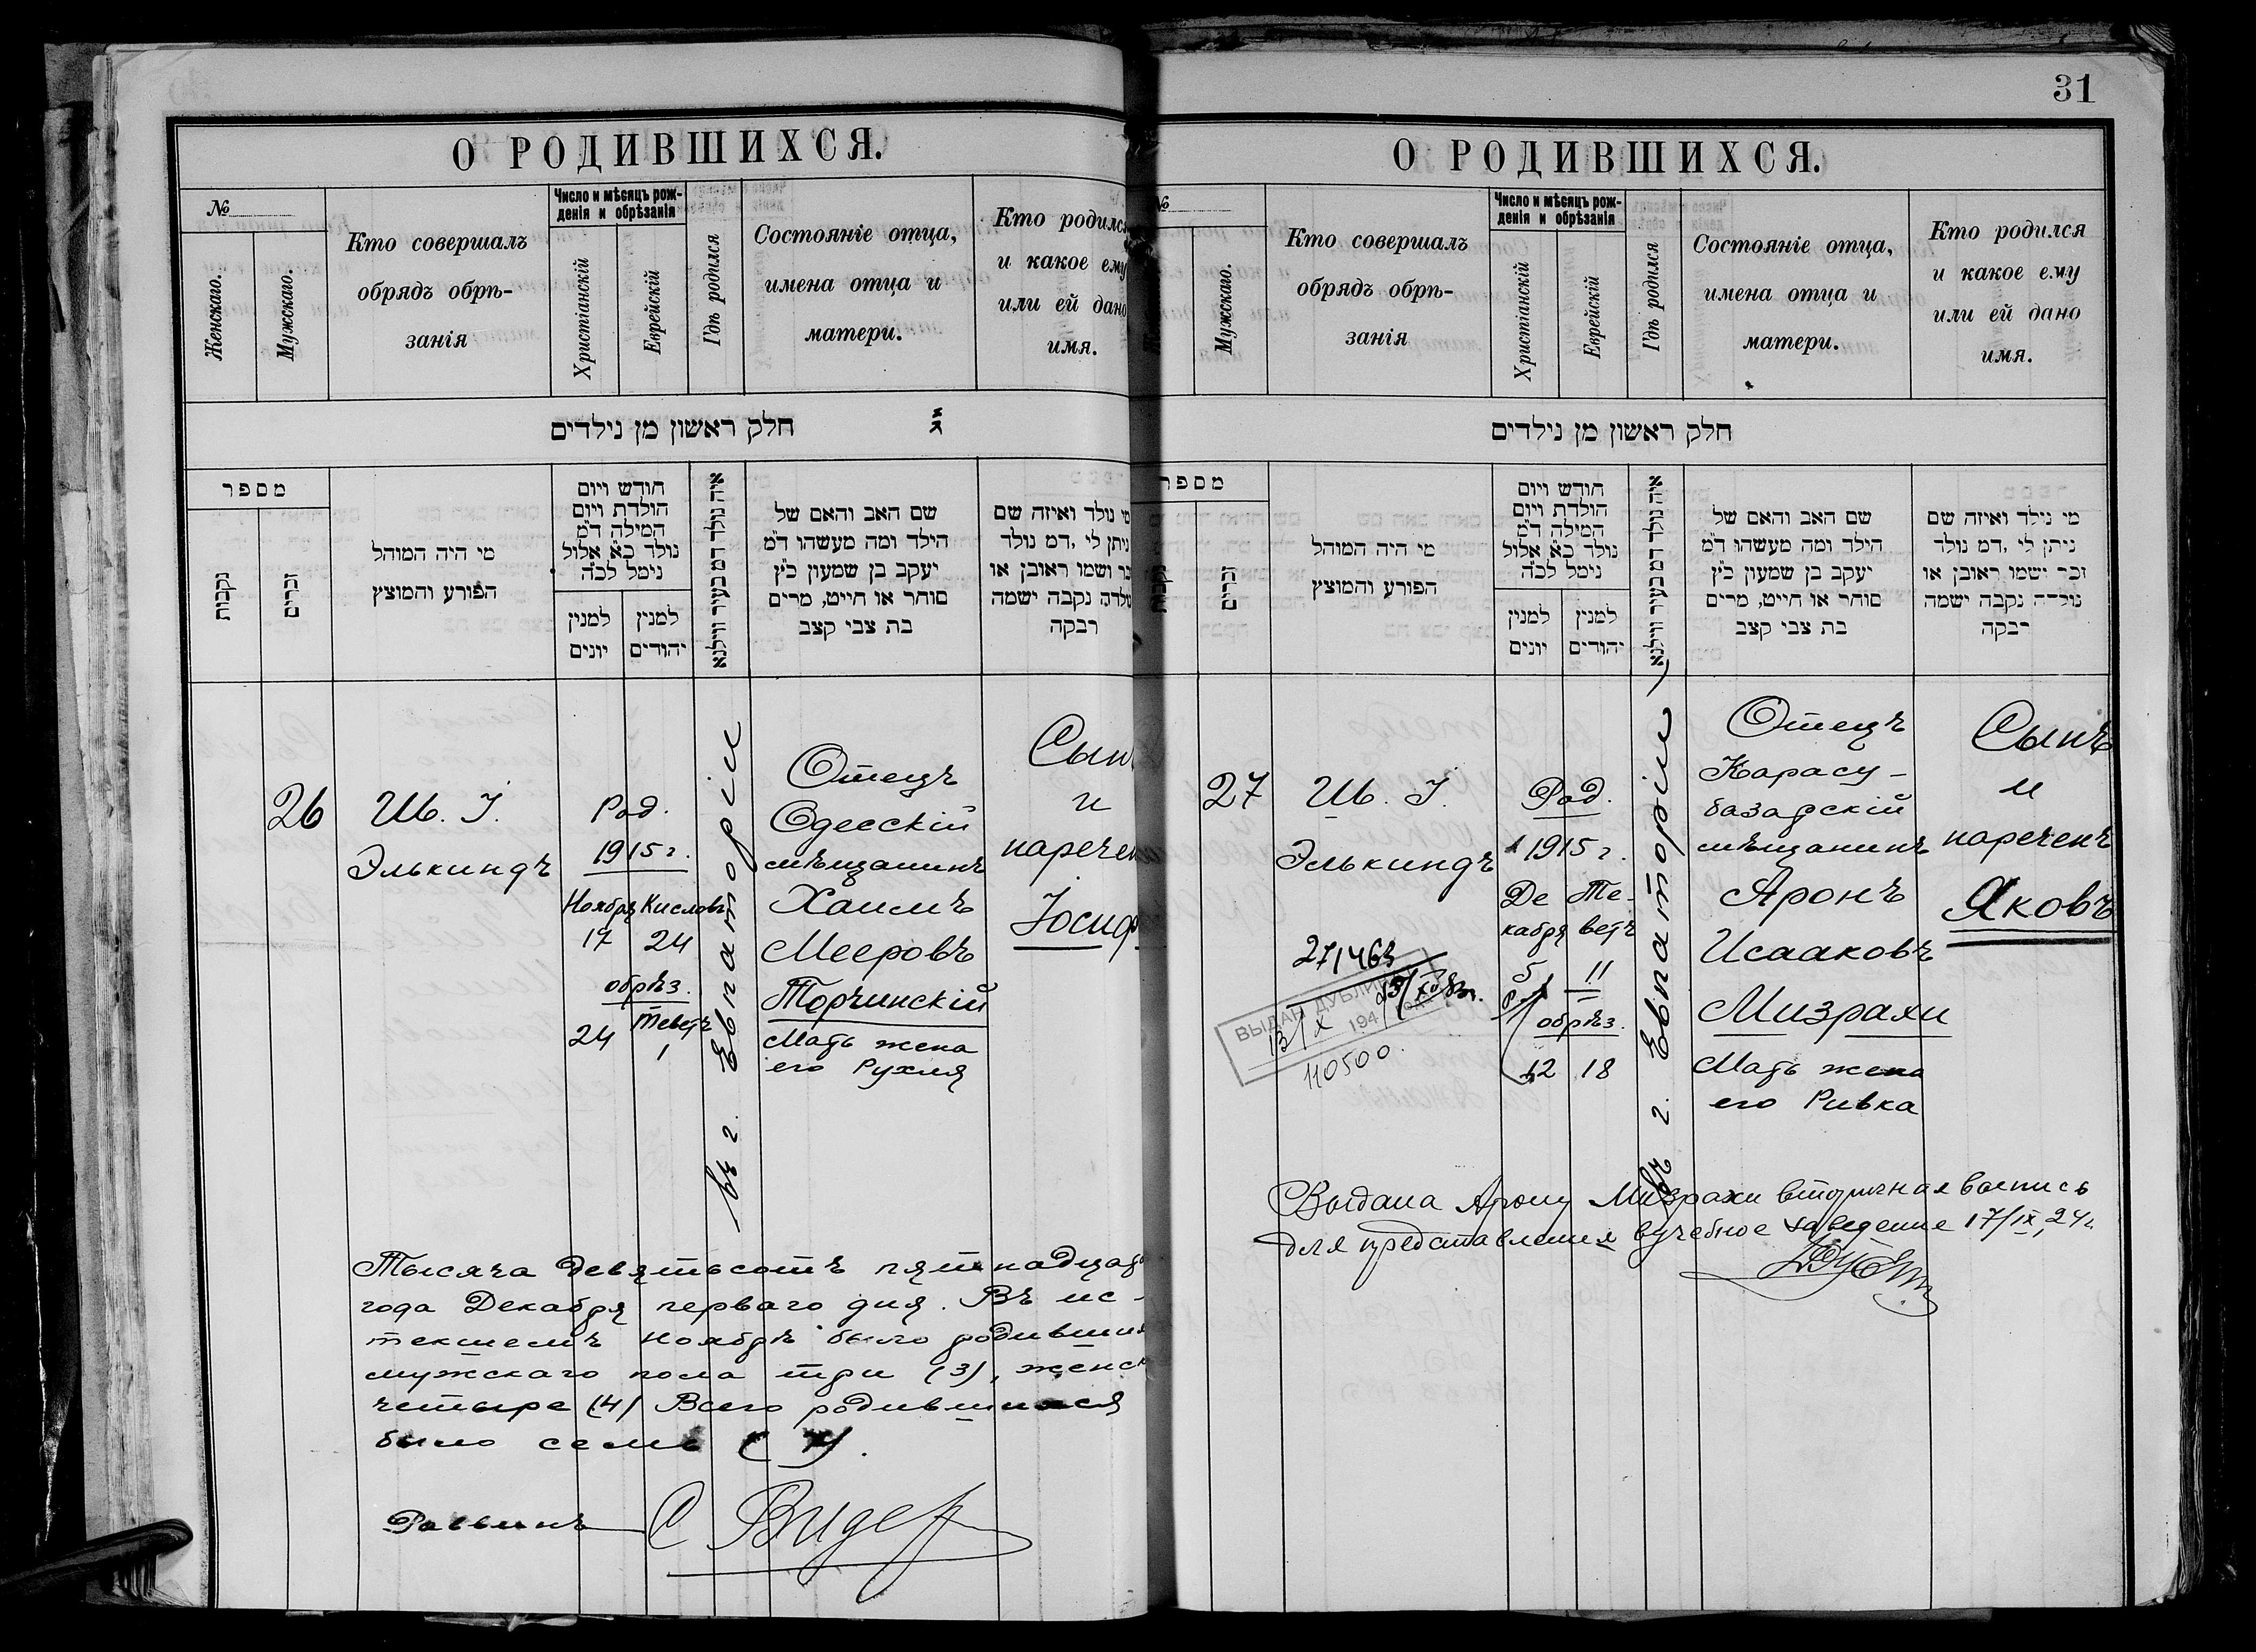 О РОДИВШИХСЯ.
№
Женскаго.
Мужскаго.
Кто совершалъ
обрядъ обрѣ-
занія
Число и мѣсяцъ рож-
денія и обрѣзанія
Христіанскій
Еврейскій
Гдѣ родился
Состояніе отца,
имена отца и
матери.
Кто родился
и какое ему
или ей дано
имя.
חלק ראשון מן נילדים
מספר
נקבות
זכרים
מי היה המוהל
הפורע והמוצץ
חודש ויום
הולדת ויום
המילה ד״מ
נולד כ״א אלול
נימל לכ״ה
למנין
יונים
למנין
יהודים
איה נולד דמ בעיר ווילנא
שם האב והאם של
הילד ומה מעשהו ד״מ
יעקב בן שמעון כ״ץ
סוחר או חייט, מרים
בת צבי קצב
מי נולד ואיזה שם
ניתן לי ,דמ נולד
זכר ושמו ראובן או
נולדה נקבה ישמה
רבקה
26
Ш. І.
Элькиндъ
Род.
1915 г.
Ноября Кислевъ
17 24
обрѣз.
24 Теветъ
1
въ г. Евпаторіи
Отецъ
Одесскій
мѣщанинъ
Хаимъ
Мееровъ
Торчинскій
Мать жена
его Рухля
Сынъ
и
наречен
Іосиф
Тысяча девятьсотъ пятнадцат
года Декабря перваго дня. Въ ис-
текшемъ ноябрѣ было родивших
мужскаго пола три (3), женск
четыре (4) Всего родившихся
было семь (7).
Раввинъ С Видер
31
О РОДИВШИХСЯ.
№
Мужскаго.
Кто совершалъ
обрядъ обрѣ-
занія
Число и мѣсяцъ рож-
денія и обрѣзанія
Христіанскій
Еврейскій
Гдѣ родился
Состояніе отца,
имена отца и
матери.
Кто родился
и какое ему
или ей дано
имя.
חלק ראשון מן נילדים
מספר
נקבות
זכרים
מי היה המוהל
הפורע והמוצץ
חודש ויום
הולדת ויום
המילה ד״מ
נולד כ״א אלול
נימל לכ״ה
למנין
יונים
למנין
יהודים
איה נולד דמ בעיר ווילנא
שם האב והאם של
הילד ומה מעשהו ד״מ
יעקב בן שמעון כ״ץ
סוחר או חייט, מרים
בת צבי קצב
מי נילד ואיזה שם
ניתן לי ,דמ נולד
זכר ישמו ראובן או
נולדה נקבה ישמה
רבקה
27
Ш. І.
Элькиндъ
Род.
1915 г.
Де Те-
кабря ветъ
5 11
обрѣз.
12 18
въ г. Евпаторіи
Отецъ
Карасу-
базарскій
мѣщанинъ
Аронъ
Исааковъ
Мизрахи
Мать жена
его Ривка
Сынъ
и
нареченъ
Яковъ
271463
ВЫДАН ДУБЛИК
13/X 194
110500.
Выдана Арону Мизрахи вторичная выпись
для представления в учебное заведение 17/IX 24 г.